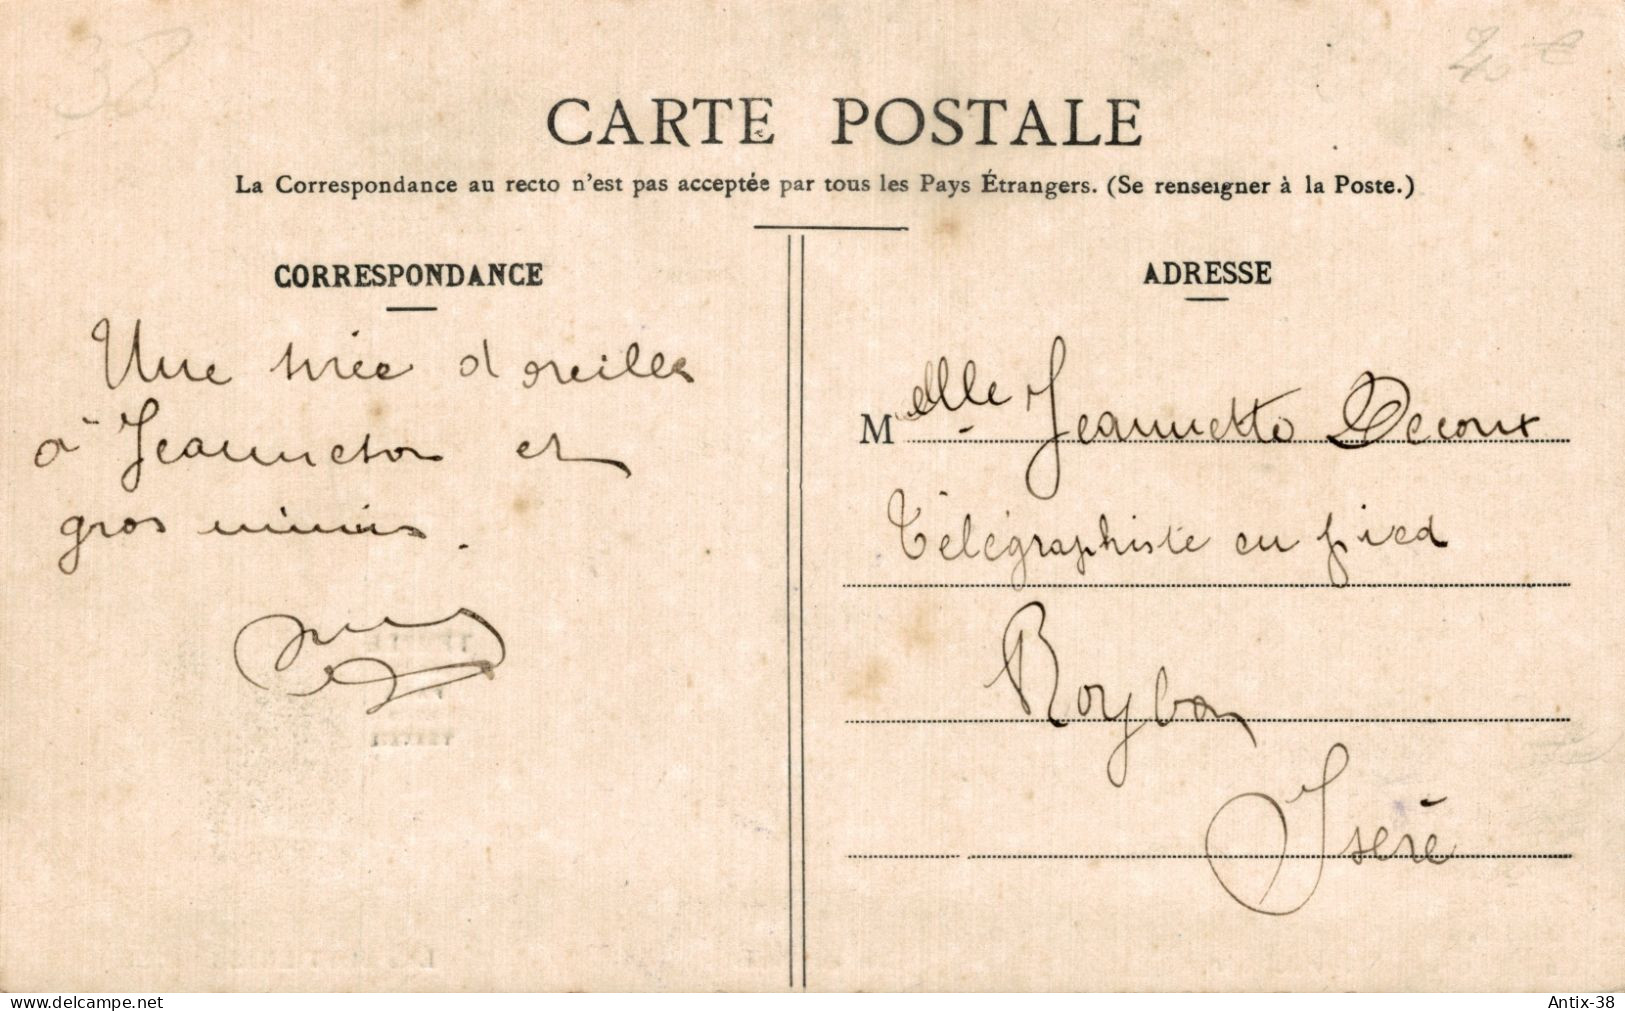 38
CARTE POSTALE
La Correspondance au recto n'est pas acceptée par tous les Pays Étrangers. (Se renseigner à la Poste.)
CORRESPONDANCE
Une tirée d oreilles
à Jeanneton et
gros mimis.
ADRESSE
Melle Jeannette Decoux
Télégraphiste en pied
Roybon
Isère
www.delcampe.net
Antix-38